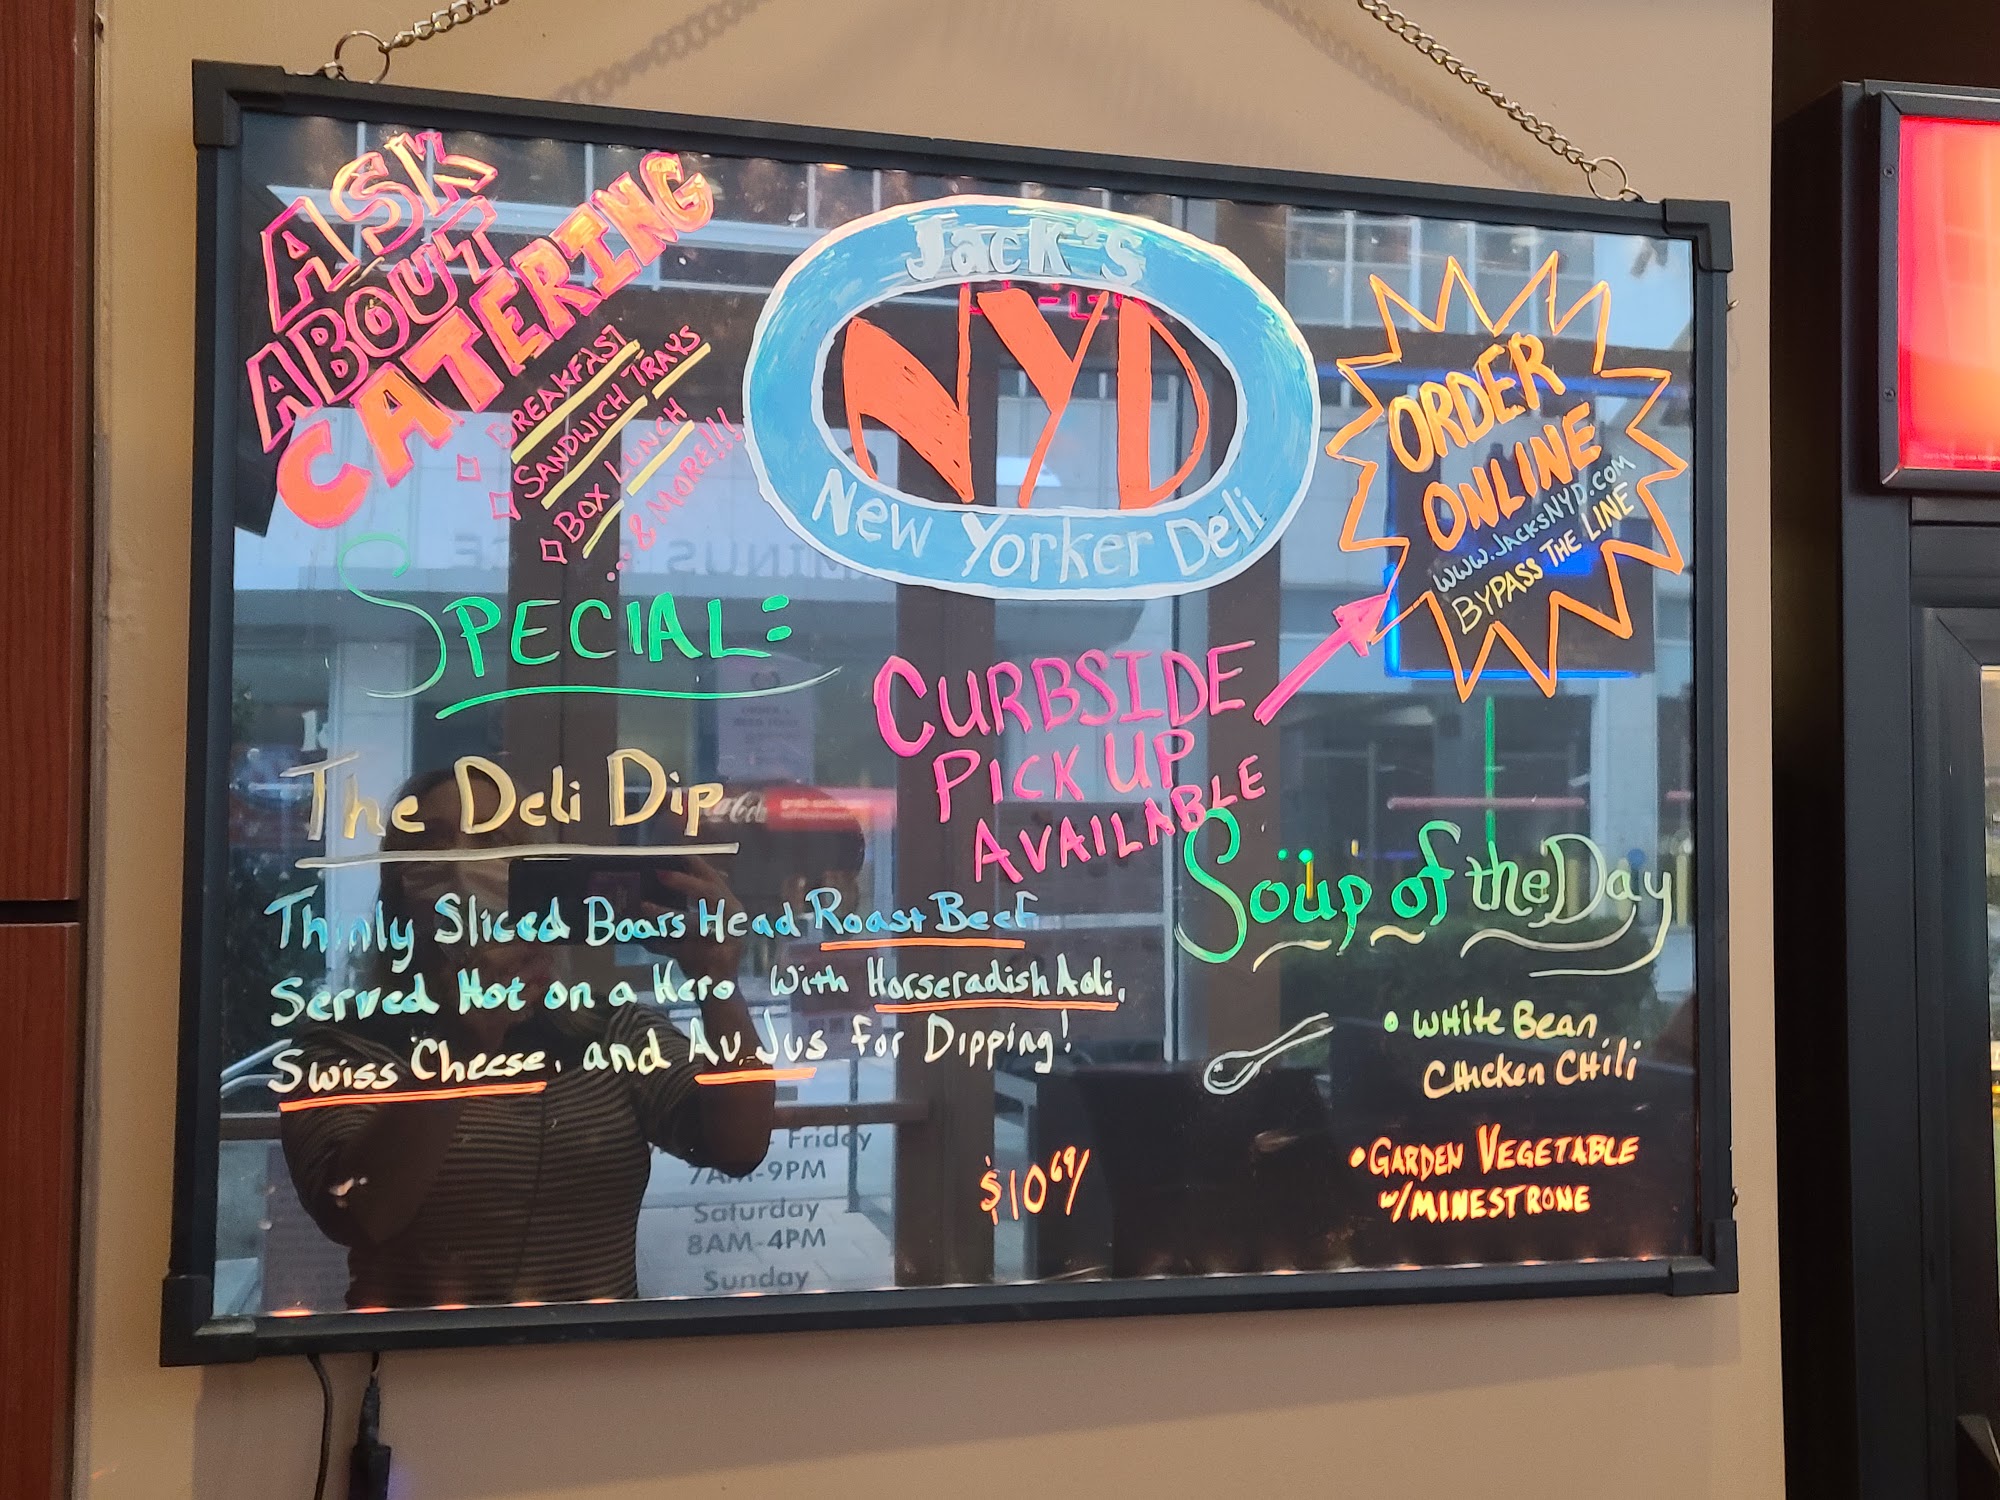 ASK
ABOUT
CATERING
BREAKFAST
SANDWICH TRAYS
BOX LUNCH
...& MORE!!!
Jack's
NYD
New Yorker Deli
ORDER
ONLINE
WWW.JACKSNYD.COM
BYPASS THE LINE
SPECIAL:
CURBSIDE
PICK UP
AVAILABLE
The Deli Dip
Thinly Sliced Boars Head Roast Beef
Served Hot on a Hero with Horseradish Aoli,
Swiss Cheese, and Au Jus for Dipping!
$10.69/
Soup of the Day
• White Bean
Chicken Chili
• GARDEN VEGETABLE
w/MINESTRONE
Coca-Cola
- Friday
7AM-9PM
Saturday
8AM-4PM
Sunday